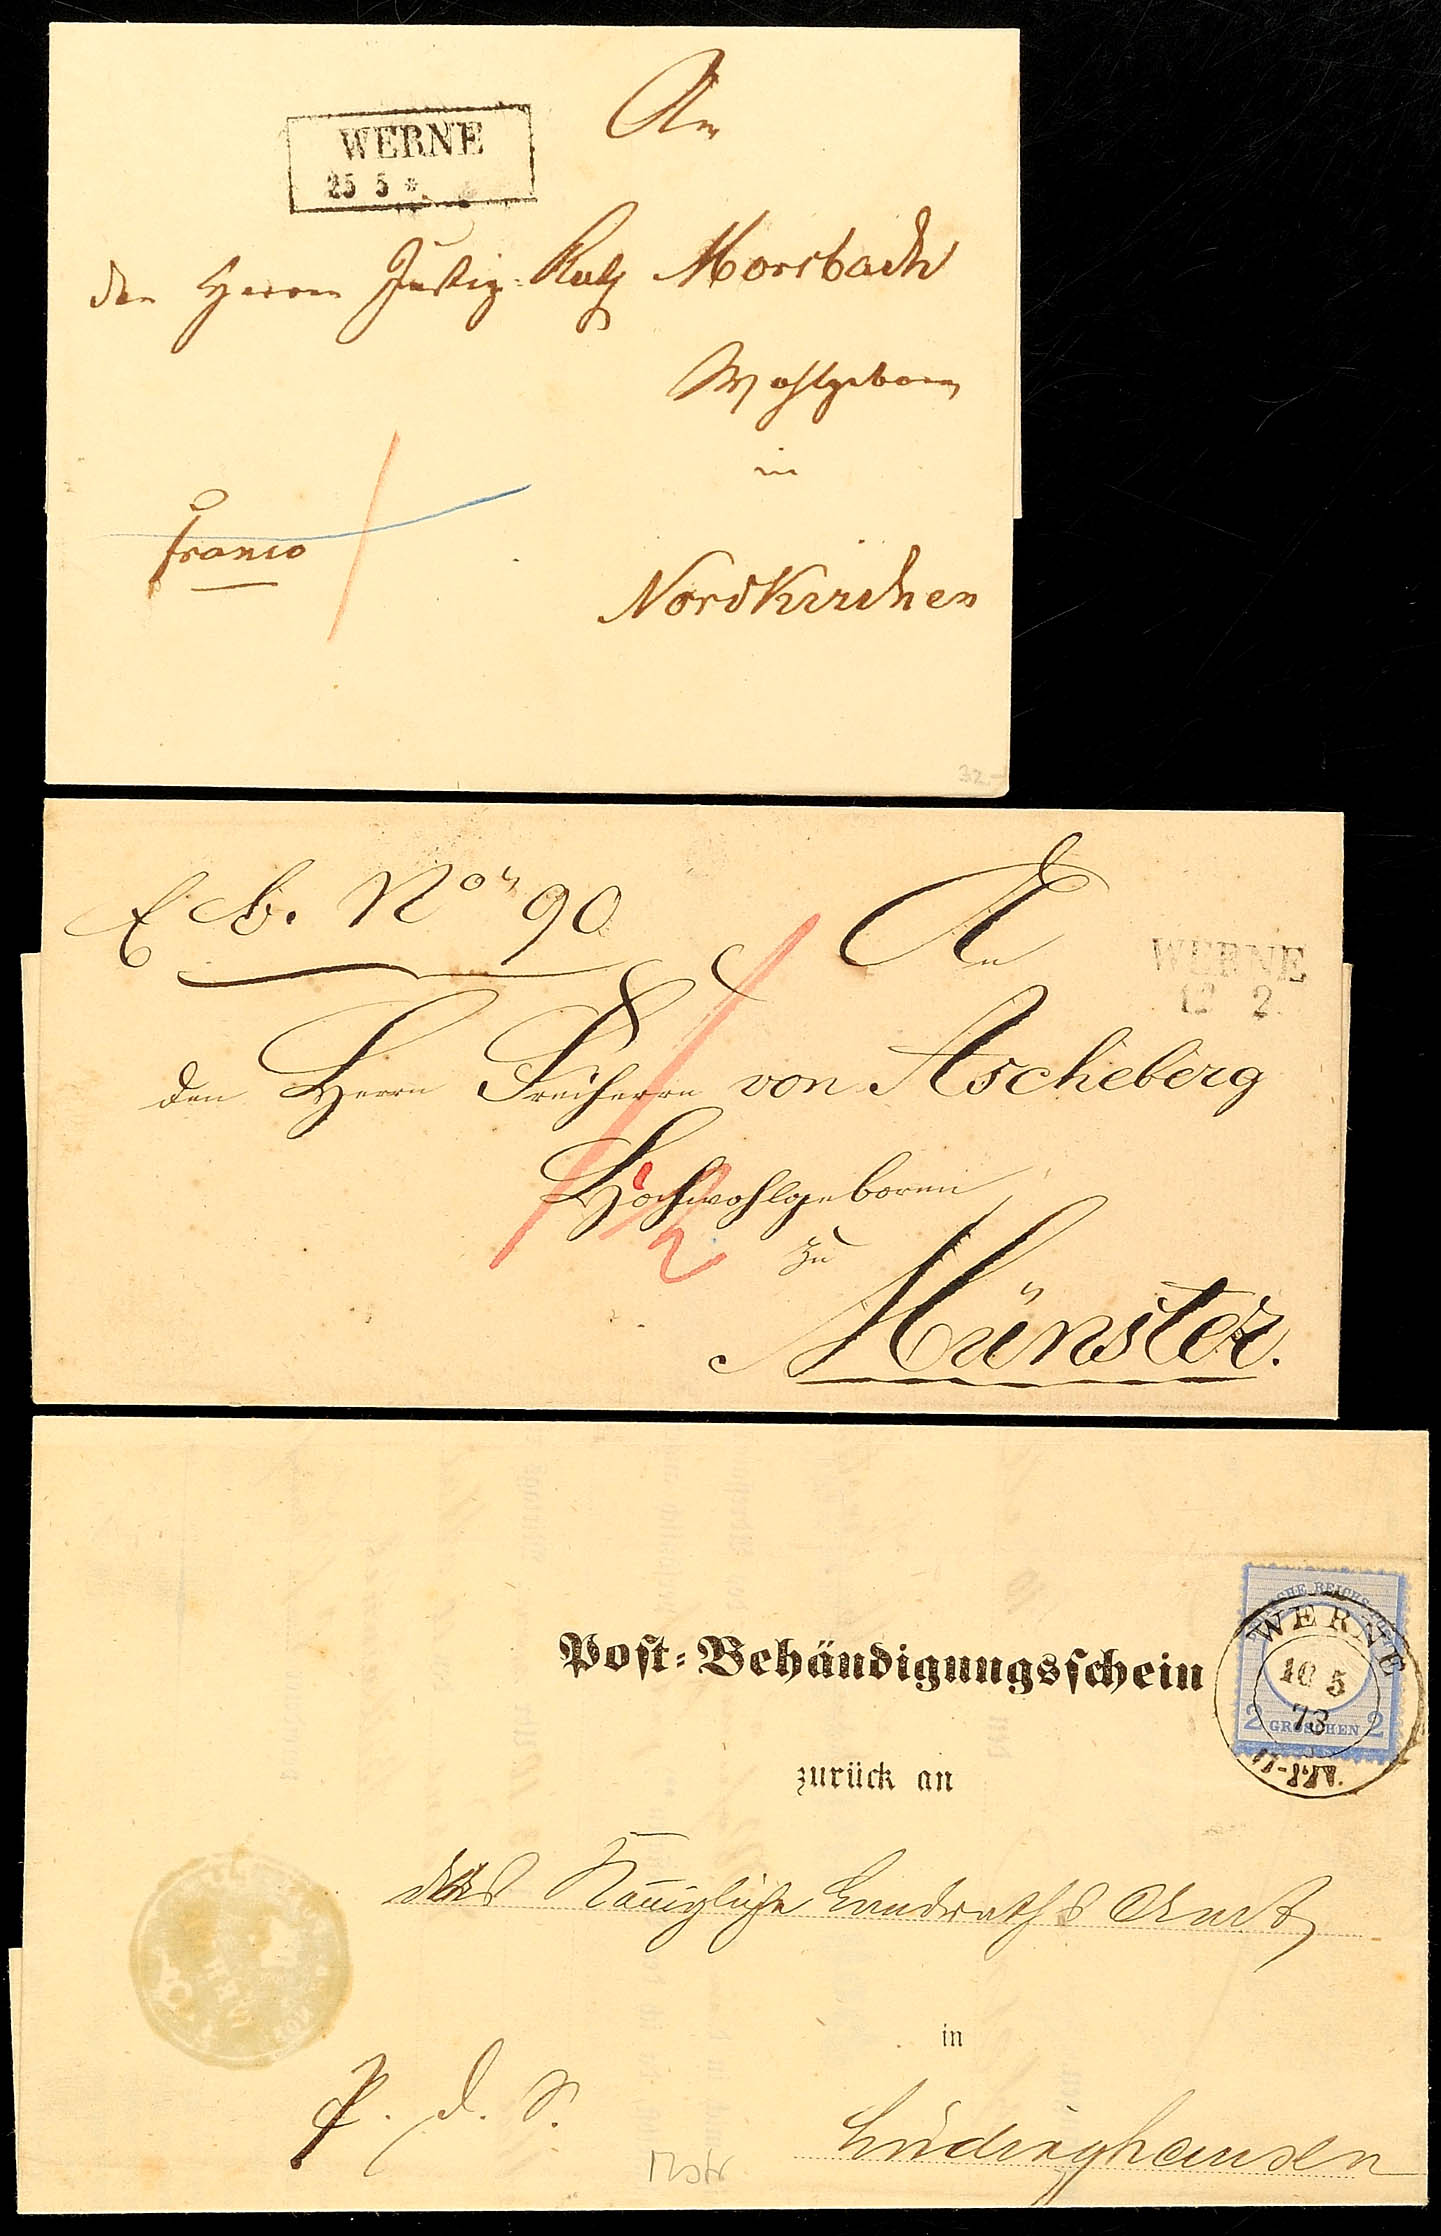 An
WERNE
25 5 *
den Herrn Justiz-Rath Morsbach
Wohlgeboren
in
franco
Nordkirchen
32.-
E. B. No 90
An
WERNE
12 2.
den Herrn Freiherrn von Ascheberg
Hochwohlgeboren
zu
Münster.
DEUTSCHE REICHS-POST
WERNE
10 5
73
2 GROSCHEN 2
Post-Behändigungsschein
zurück an
das Königliche Landraths Amt
in
p. d. S.
Lüdinghausen
Mstr